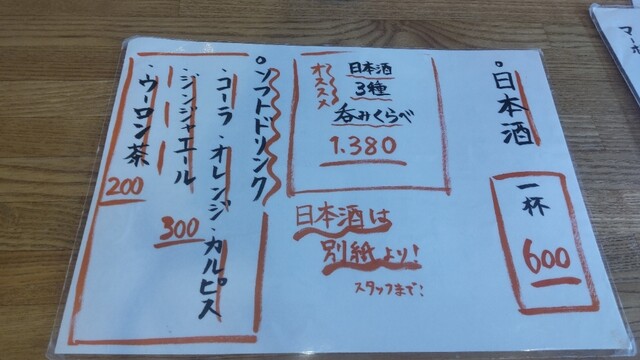 。日本酒
一杯
600
オススメ
日本酒
3種
呑みくらべ
1.380
日本酒は
別紙より!
スタッフまで!
。ソフトドリンク
・コーラ・オレンジ・カルピス
・ジンジャエール
300
・ウーロン茶
200